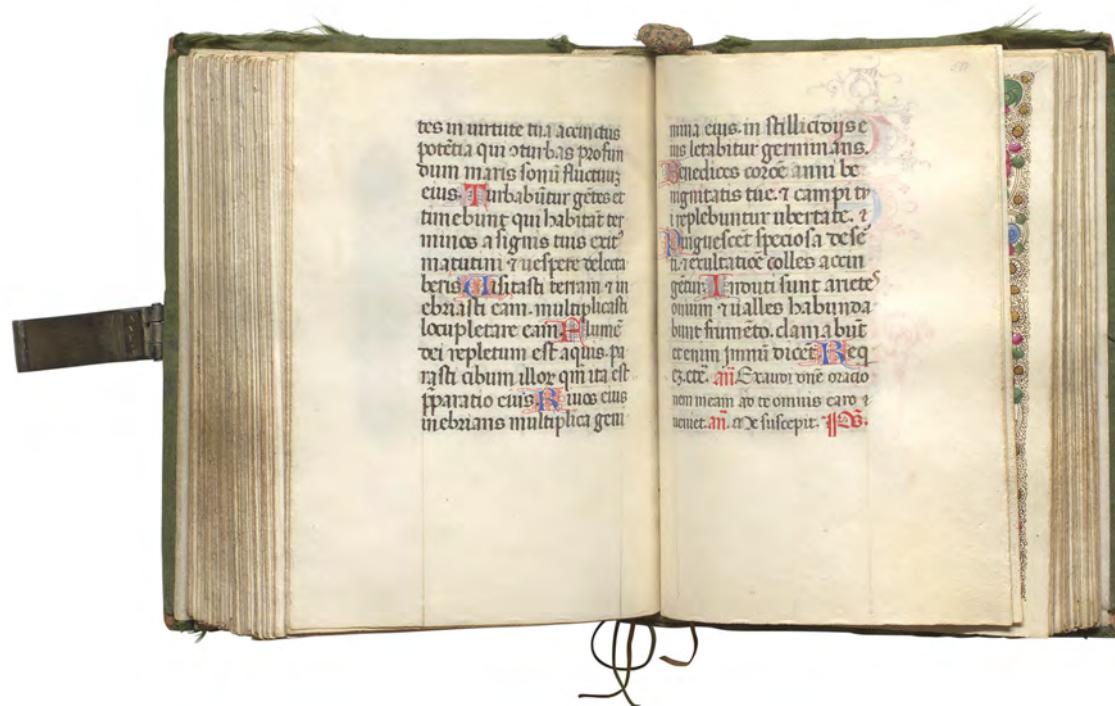 tes in uirtute tua accinctus
potētia qui ↄturbas profun
dum maris sonū fluctuuꝫ
eius. Turbabūtur gētes et
timebunt qui habitāt ter
minos a signis tuis exit᷒
matutini ⁊ uespere delecta
beris Uisitasti terram ⁊ in
ebriasti eam. multiplicasti
locupletare eam. Flumē
dei repletum est aquis. pa
rasti cibum illor qm̄ ita est
p̄paratio eius. Riuos eius
inebrians multiplica geni
mina eius. in stillicidijs e
ius letabitur germinans.
Benedices coroē anni be
nignitatis tue. ⁊ campi tu
i replebuntur ubertate. ⁊
Pinguescēt speciosa dese
ti. ⁊ exultatiōe colles accin
gētur. Induti sunt arietes
ouium ⁊ ualles habunda
bunt frumēto. clamabūt
etenim jmnū dicēt. Req
eꝫ. etē. añ. Exaudi dn̄e oratio
nem meam ad te omnis caro ⁊
ueniet. añ. Me suscepit. p̄s.